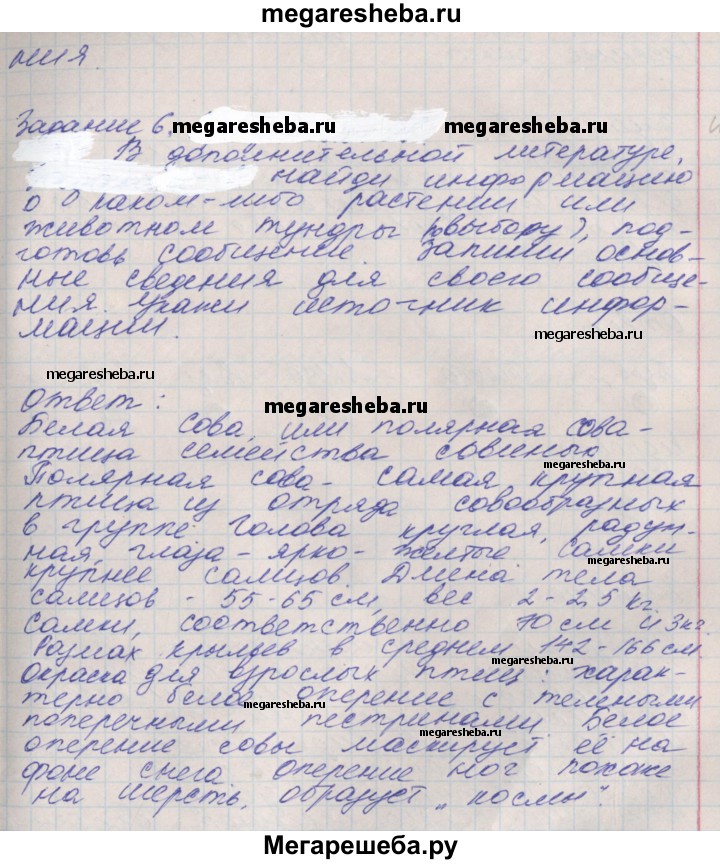 megaresheba.ru
ния.
Задание 6. megaresheba.ru megaresheba.ru
В дополнительной литературе,
найди информацию
о каком-либо растении или
животном тундры (по выбору), под-
готовь сообщение. Запиши основ-
ные сведения для своего сообще-
ния. Укажи источник инфор-
мации.
megaresheba.ru
megaresheba.ru
Ответ: megaresheba.ru
Белая сова, или полярная сова -
птица семейства совиных.
megaresheba.ru
Полярная сова - самая крупная
птица из отряда совообразных
в группе. Голова круглая, радуж-
ная, глаза - ярко-желтые. Самки
megaresheba.ru
крупнее самцов. Длина тела
самцов - 55-65 см, вес 2-2,5 кг.
самки, соответственно 70 см и 3 кг.
Размах крыльев в среднем 142-166 см
megaresheba.ru
окраска для взрослых птиц: харак-
терно белое оперение с темными
megaresheba.ru megaresheba.ru
поперечными пестринами. Белое
оперение совы маскирует её на
фоне снега. оперение ног похоже
на шерсть, образует „космы".
Мегарешеба.ру